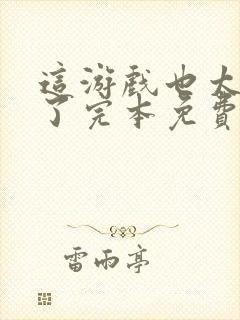 這游戲也太
了完本免費
雷雨亭